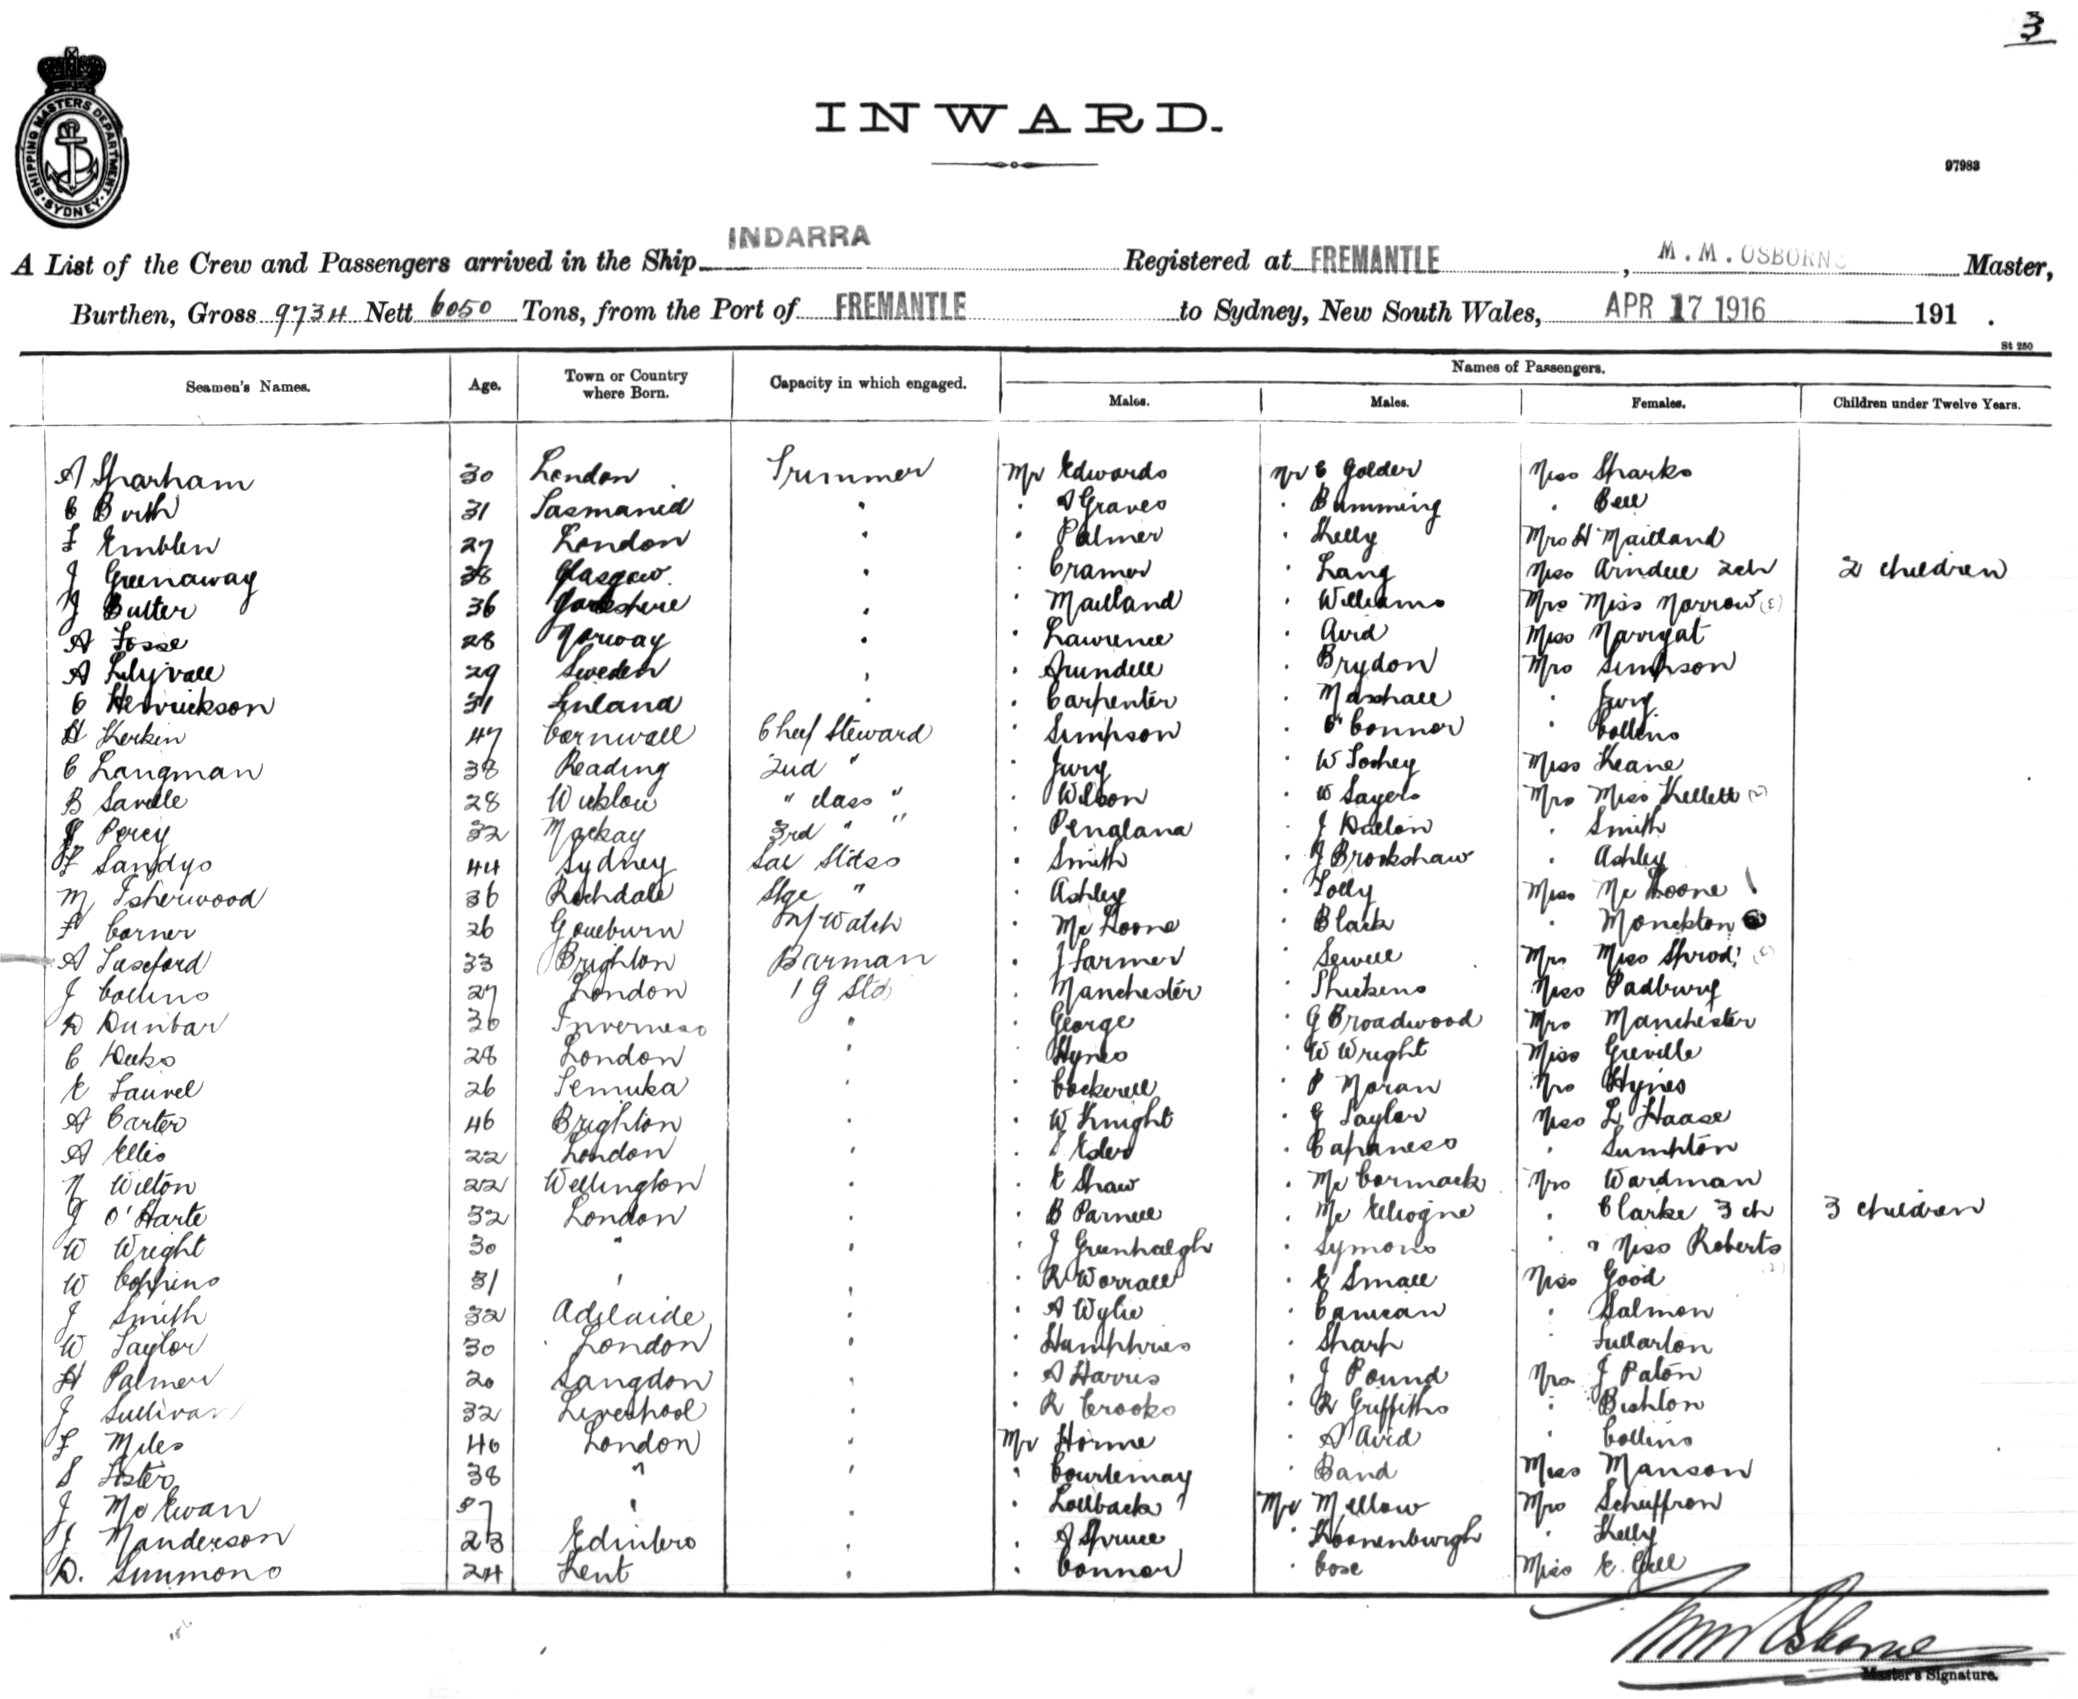 3
SHIPPING MASTERS DEPARTMENT. SYDNEY.
INWARD.
97983
A List of the Crew and Passengers arrived in the Ship INDARRA Registered at FREMANTLE, M.M. OSBORNE Master,
Burthen, Gross 9734 Nett 6050 Tons, from the Port of FREMANTLE to Sydney, New South Wales, APR 17 1916 191 .
St 250
Names of Passengers.
Seamen's Names. Age. Town or Country where Born. Capacity in which engaged. Males. Males. Females. Children under Twelve Years.
A Sparham 30 London Trimmer Mr Edwards Mr C Golder Miss Sharks
C Buth 31 Tasmania " " A Graves " Bumming " Bell
F Emblen 27 London " " Palmer " Kelly Mrs H Mailland
J Greenaway 38 Glasgow " " Cramer " Lang Miss Arindell 2ch 2 children
J Butter 36 Yorkshire " " Mailland " Williams Mrs Miss Morrow (2)
A Fosse 28 Norway " " Lawrence " Avid Miss Narrigat
A Lilyvall 29 Sweden " " Arundell " Brydon Mrs Simpson
C Henrickson 31 Finland " " Carpenter " Marshall " Jury
H Kerkin 47 Cornwall Chief Steward " Simpson " O'Connor " Collins
C Langman 38 Reading 2nd " " Jury " W Toohey Miss Keane
B Saville 28 Wicklow " class " " Wilson " W Sayers Mrs Miss Kellett (2)
J Percy 32 Mackay 3rd " " " Penglana " J Dalton " Smith
F Sandys 44 Sydney Sal Stdss " Smith " J Brookshaw " Ashley
M Isherwood 36 Rochdale Stge " " Ashley " Jolly Miss McLoone
F Corner 26 Goulburn N/Watch " McLoone " Black " Monckton
A Tuseford 33 Brighton Barman " J Farmer " Sewell Mrs Miss Shrod (2)
J Collins 27 London 1 G Std " Manchester " Thickens Miss Padbury
D Dunbar 30 Inverness " " George " G Broadwood Mrs Manchester
C Deeks 28 London " " Hynes " W Wright Miss Greville
E Laurel 26 Temuka " " Cockerell " P Moran Mrs Hynes
A Carter 46 Brighton " " W Knight " G Taylor Miss L Haase
A Ellis 22 London " " Esler " Capaness " Sumpton
N Wilton 22 Wellington " " E Shaw " McCormack Mrs Wardman
J O'Harte 32 London " " B Parnell " McElhogne " Clarke 3 ch 3 children
W Wright 30 " " " J Greenhalgh " Symons " " Miss Roberts (2)
W Coppins 31 " " " R Worrall " E Small Miss Good
J Smith 32 Adelaide " " A Wylie " Camean " Salmon
W Taylor 30 London " " Humphries " Sharp " Fullarton
H Palmer 20 Langdon " " A Harris " J Pound Mrs J Paton
J Sullivan 32 Liverpool " " R Crooks " R Griffiths " Bishton
F Miles 40 London " Mr Horne " A Avid " Collins
S Foster 38 " " " Courtenay " Band Miss Manson
J McEwan 57 " " " Lollback Mr Mellow Mrs Scheffron
J Manderson 23 Edinbro " " A Spruce " Koonenburgh " Kelly
D. Simmons 24 Kent " " Connor " Cose Miss E. Gell
MM Osborne
Master's Signature.